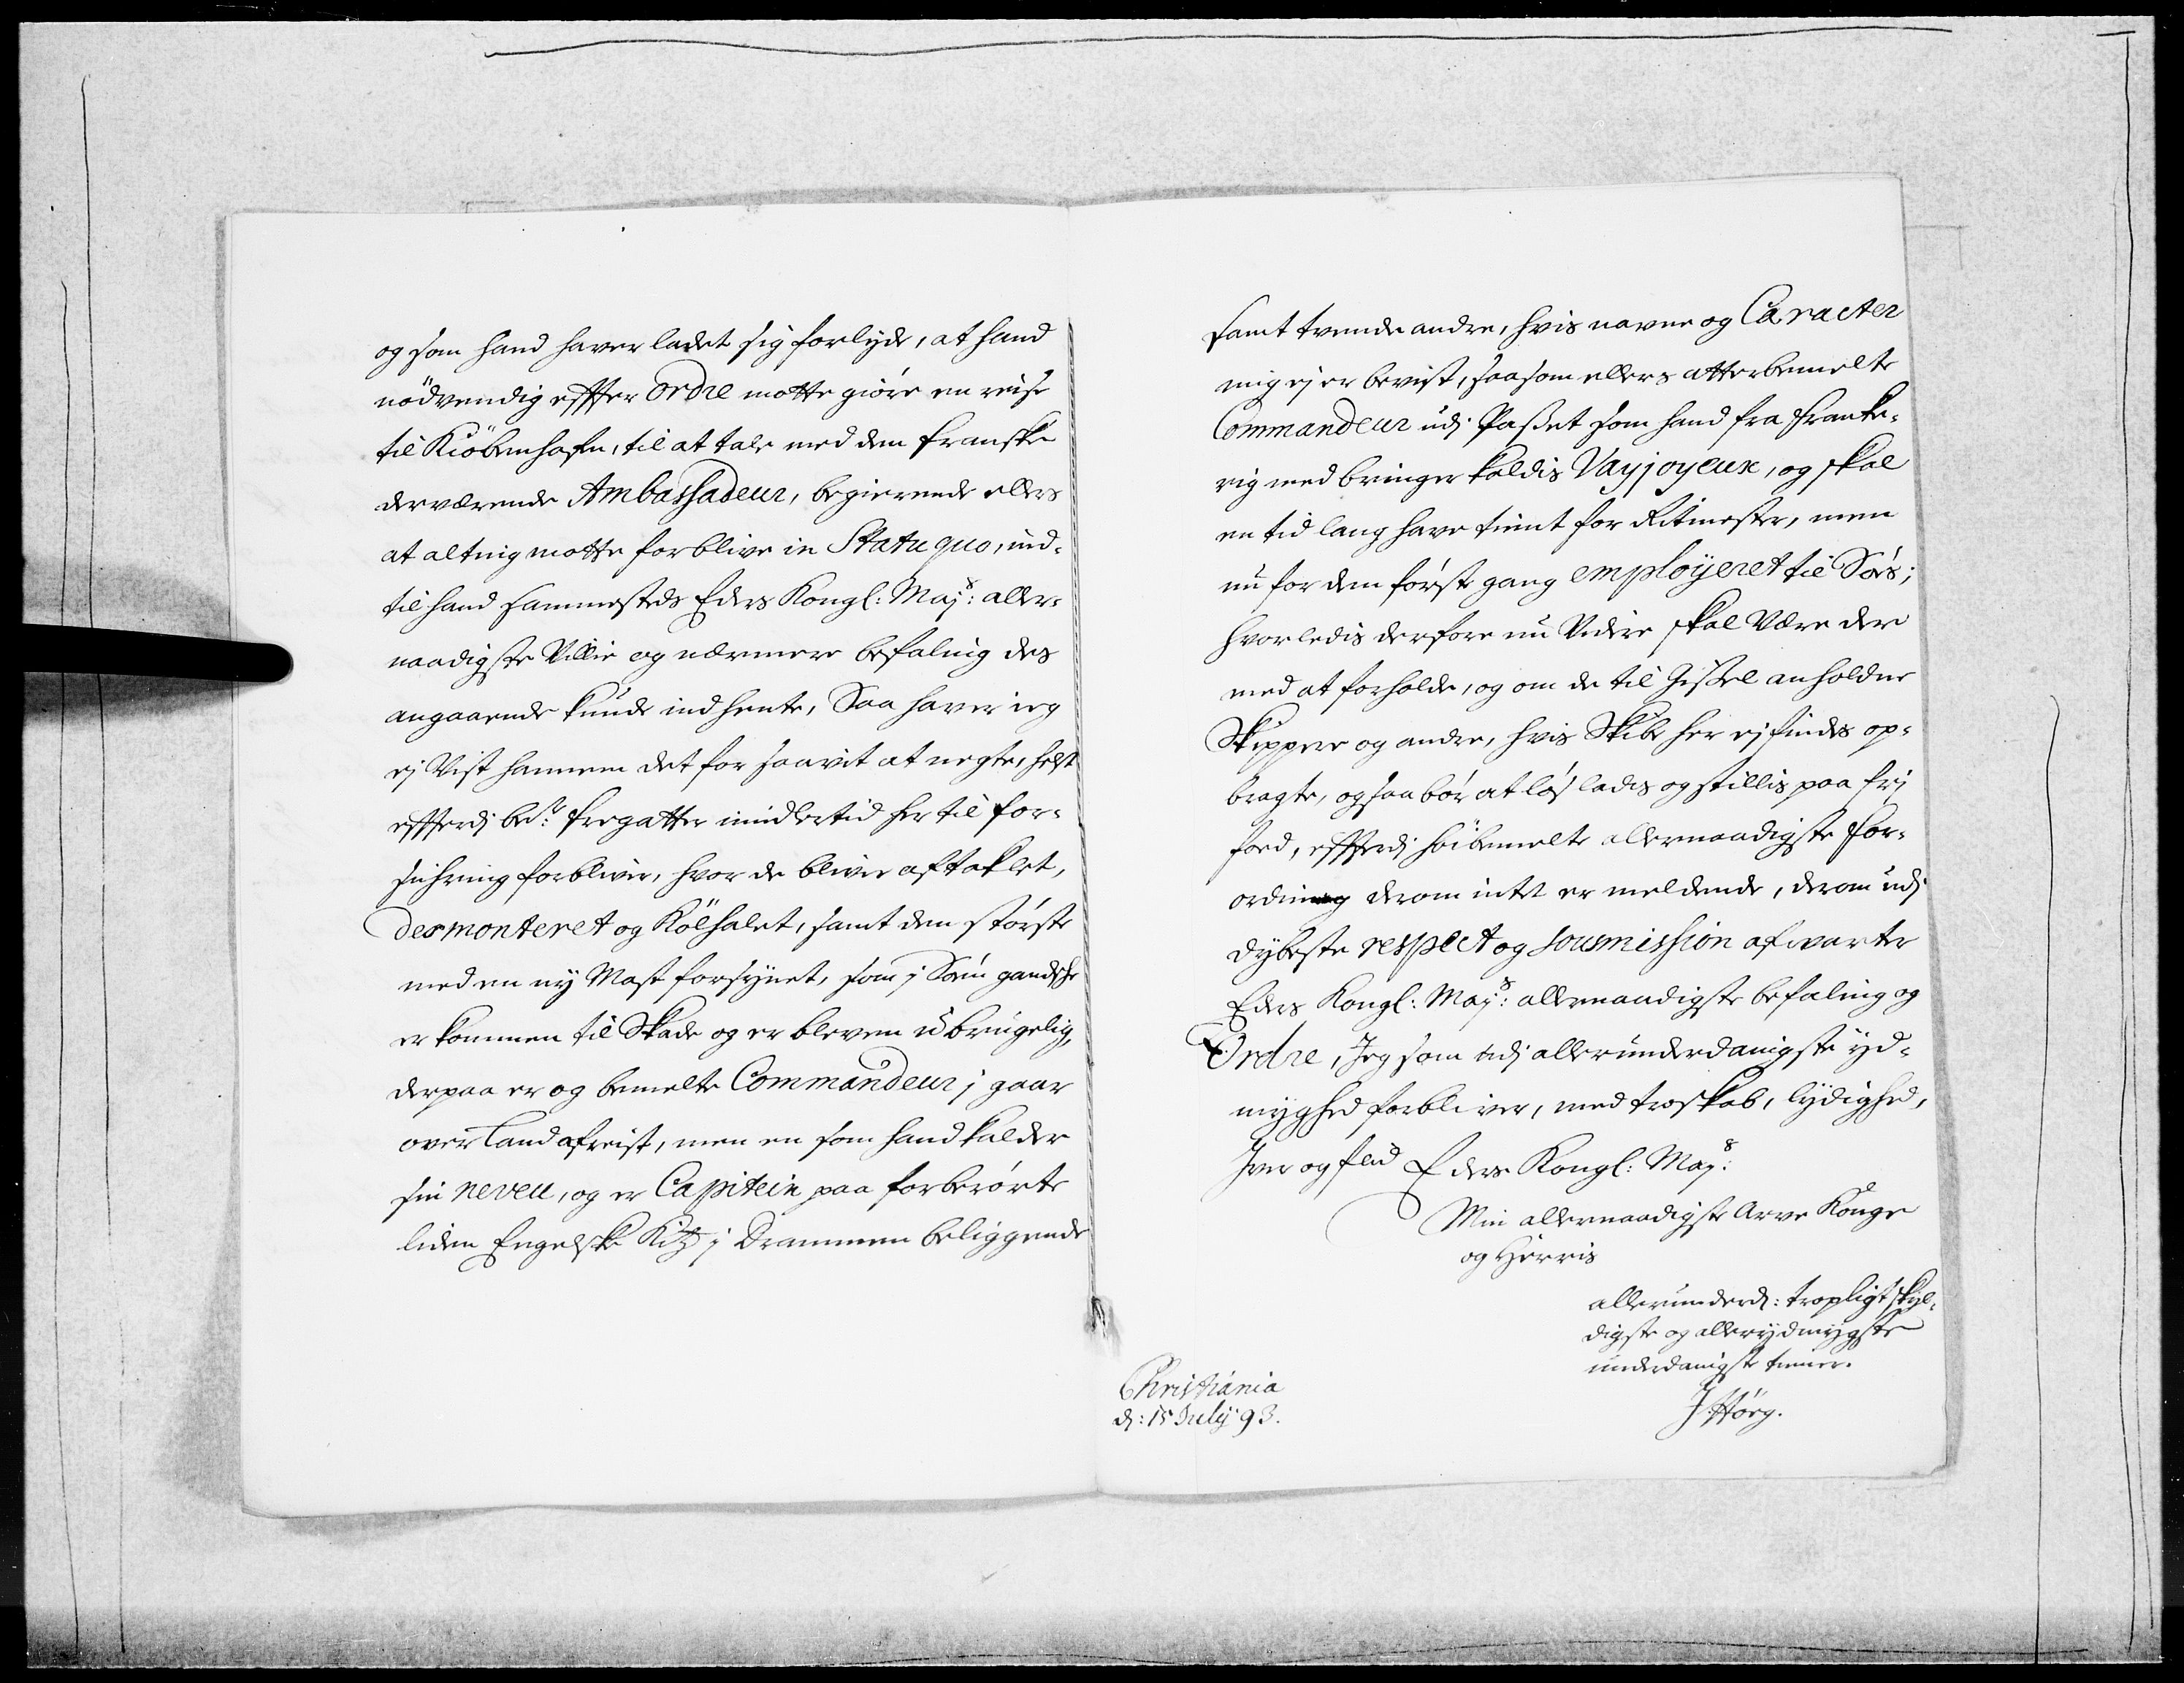 og som hand haver ladet sig forlyde, at hand
nödvendig effter ordre motte giöre en reise
til Kiöbenhafn, til at tale med den franske
derværende Ambassadeur, begierende ellers
at alting motte forblive in Statu quo, ind-
til hand sammesteds Eders Kongl: Mays: aller-
naadigste Villie og nærmere befaling des
angaaende kunde indhente, Saa haver ieg
ej Vist hannem det for saavit at negte, helst
effterdj bete: fregatter imidlertid her til for-
sichring forbliver, hvor de bliver aftaklet,
desmonteret og Kölhalet, samt den störste
med en ny Mast forsynet, som j Söen gandske
er kommen til Skade og er bleven ubrugelig,
derpaa er og bemelte Commandeur j gaar
over Land afreist, men en som hand kalder
sin neveu, og er Capitein paa forberörte
liden Engelske Kitz j Drammen beliggende
samt tvende andre, hvis navne og Caracter
mig ej er bevist, saasom ellers atterbemelte
Commandeur udj Passet som hand fra Franke-
rig med bringer kaldis Vayjoyeux, og skal
en tid lang have tient for Ritmester, men
nu for den förste gang employeret til Söes;
hvorledis derfore nu Videre skal Være der
med at forholde, og om de til Gissel anholdne
Skippere og andre, hvis Skibe her ej findes op-
bragte, ogsaa bör at lösladis og stillis paa frj
foed, effterdj höibemelte allernaadigste For-
ordning derom intet er meldende, derom udj
dybeste respect og soumission afvarter
Eders Kongl: Mays: allernaadigste befaling og
Ordre, Jeg som udj allerunderdanigste yd-
myghed forbliver, med troskab, lydighed,
Iver og flid Eders Kongl: Mays:
Min allernaadigste Arve Konge
og Herris
allerunderd: tropligtskyl-
digste og allerydmygste
underdanigste tiener.
Christiania
d: 15 July 93.